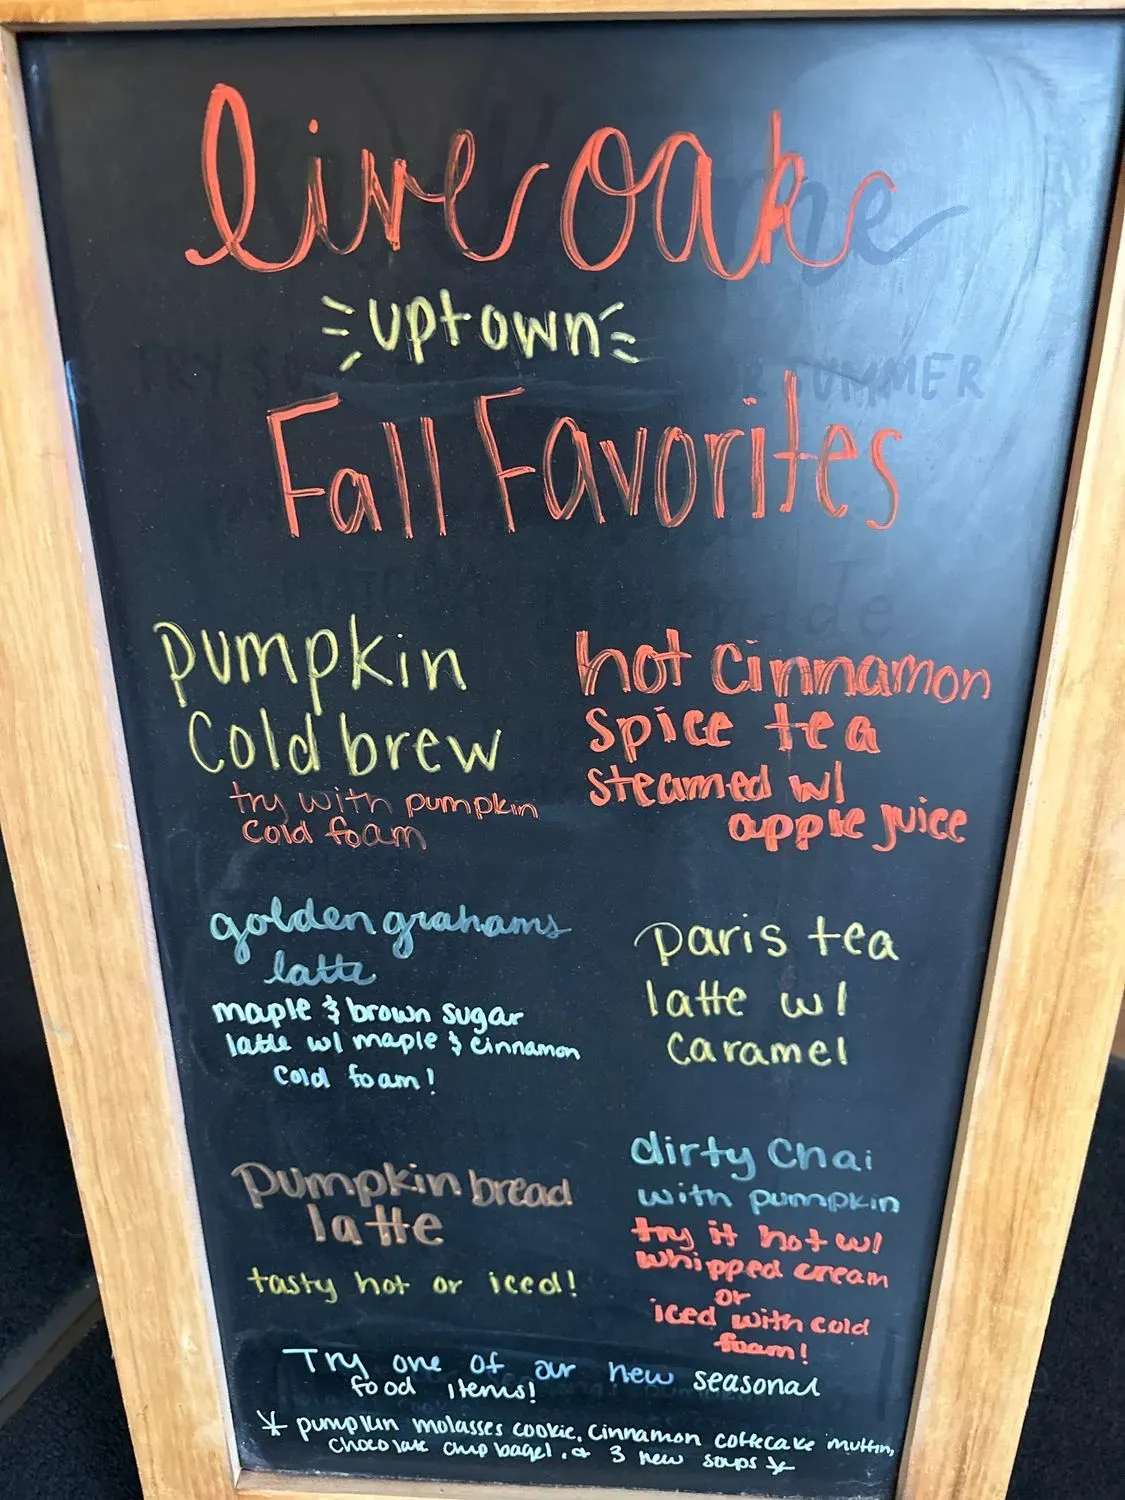 live oak
uptown
Fall Favorites
pumpkin
Cold brew
try with pumpkin
Cold foam
hot cinnamon
spice tea
steamed w/
apple juice
golden grahams
latte
maple & brown sugar
latte w/ maple & cinnamon
cold foam!
paris tea
latte w/
caramel
Pumpkin bread
latte
tasty hot or iced!
dirty Chai
with pumpkin
try it hot w/
whipped cream
or
iced with cold
foam!
Try one of our new seasonal
food items!
* pumpkin molasses cookie, cinnamon coffecake muffin,
chocolate chip bagel, & 3 new soups *